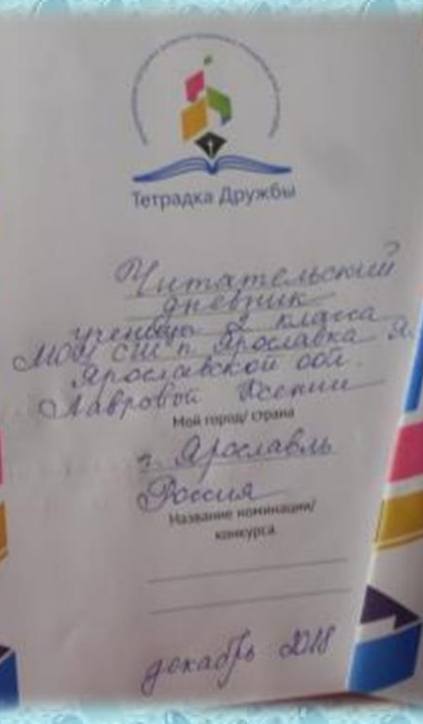 Тетрадка Дружбы
Читательский
дневник
ученицы 2 класса
МОУ СШ п. Ярославка Я.
Ярославской обл.
Лавровой Ксении
Мой город/ страна
г. Ярославль
Россия
Название номинации/
конкурса
декабрь 2018